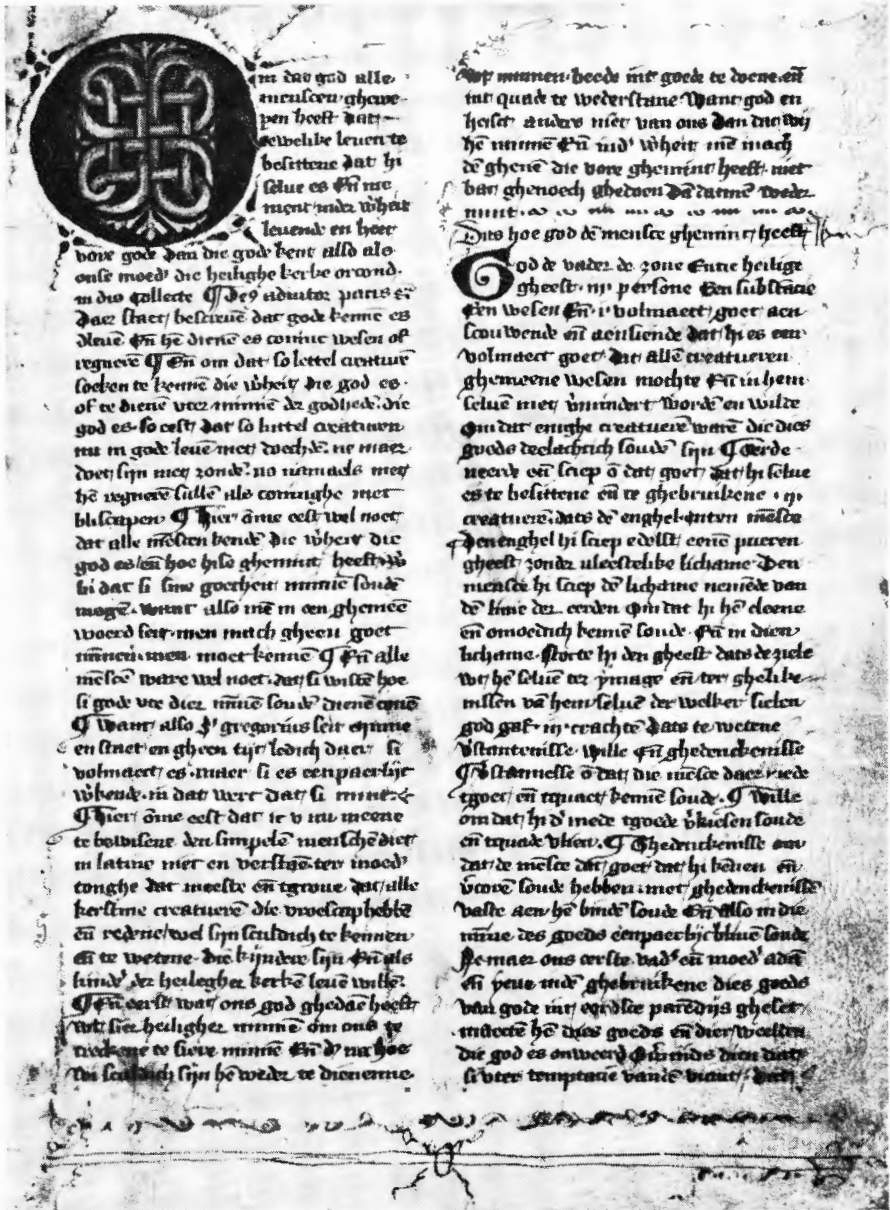 m dat god alle
menscen ghewe-
pen heeft dat
eewelike leuen te
besittene dat hi
selue es Eñ nie
ment inder wͦheit
leuende en heet
vore gode dan die gode kent also als
onse moedʼ die heilighe kerke orcond.
in die collecte ¶ Deꝯ aduitor pacis eñ
Daer staet bescreuē dat gode kennē es
dleuē Eñ hē dienē es coninc wesen of
regnerē ¶ Eñ om dat so lettel creaturē
soeken te kennē die wͦheit die god es
of te dienē vter minnē dʼ godhede die
god es so eest dat so luttel creaturen
nu in gode leuē met doechdē ne maer
doet sijn met zondē no namaels met
hē regnerē sullē als coninghe met
bliscapen ¶ Hier ōme eest wel noet
dat alle mēscen kendē die wͦheit die
god es eñ hoe hise ghemint heeft
bi dat si sine goetheit minnē soudē
moghē. Want also mē in een ghemeē
woerd seit men mach gheen goet
minnen men moet kennē ¶ Eñ alle
mēscē ware wel noet dat si wistē hoe
si gode vte dier minnē soudē dienē
¶ Want also sͭ gregorius seit minne
en staet en gheen tijt ledich daer si
volmaect es maer si es eenpaerlijc
wͦkende in dat wert dat si mint
¶ Hier ōme eest dat ic v nu meene
te bewisene den simpelē menschē die
in latine niet en verstaē ter moedʼ
tonghe dat meeste eñ tgroue dat alle
kerstine creaturē die vroescap hebbē
eñ redene wel sijn sculdich te kennen
eñ te wetene die kijndere sijn Eñ als
kindʼ der heilegher kerken leuē willē
¶ Eñ eerst wat ons god ghedaē heeft
vut sier heiligher minnē om ons te
treckene te siere minnē Eñ dʼ na hoe
wi sculdich sijn hē weder te dienenne
minnen beede int goede te doene eñ
int quade te wederstane Want god en
heiset anders niet van ons dan dat wij
hē minnē Eñ indʼ wͦheit mē mach
dē ghenē die vore ghemint heeft niet
bat ghenoech ghedoen dā datmē weder
mint
Dits hoe god dē mensce ghemint heeft
God de vader de zone Entie heilige
gheest iij persone Een substācie
Een wesen Eñ i volmaect goet aen
scouwende eñ aensiende dat hi es een
volmaect goet dat allē creatueren
ghemeene wesen mochte Eñ in hem
seluē niet vͦmindert wordē en wilde
Om dat enighe creatuere warē die dies
goeds deelachtich soudē sijn ¶ Oerde-
neerde eñ sciep ō dat goet dat hi selue
es te besittene eñ te ghebruikene ij
creatuerē dats dē enghel enten mēsce
Den enghel hi sciep edelst eenē pueren
gheest zonder vleeschelike lichame Den
mensce hi sciep dē lichame nemēde van
dē lime der eerden Om dat hi hē cleene
eñ omoedich kennē soude Eñ in dien
lichame storte hi den gheest dats de ziele
wt hē selue ter ymage eñ ter ghelike-
nissen vā hem seluē der welker sielen
god gaf iij crachtē Dats te wetene
vͦstantenisse wille Eñ ghedenckenisse
¶ Vͦstannesse ō dat die mēsce daer mede
tgoet eñ tquaet kennē soude ¶ Wille
om dat hi dʼ mede tgoede vͦkiesen soude
eñ tquade vlien ¶ Ghedenckenisse om
dat de mēsce dat goet dat hi kennen eñ
vͦcorē soude hebben met ghedenckenissē
vaste aen hē bindē soude Eñ also in die
minne des goeds eenpaerlijc bliuē soude
Ne maer ons eerste vadʼ eñ moedʼ adā
eñ yeue indē ghebruikene dies goeds
van gode int eerdsce paredijs gheset
maecte hē dies goeds eñ dier weelden
die god es onweerd Ouermids dien dat
si vter temptatie vandē viant dat